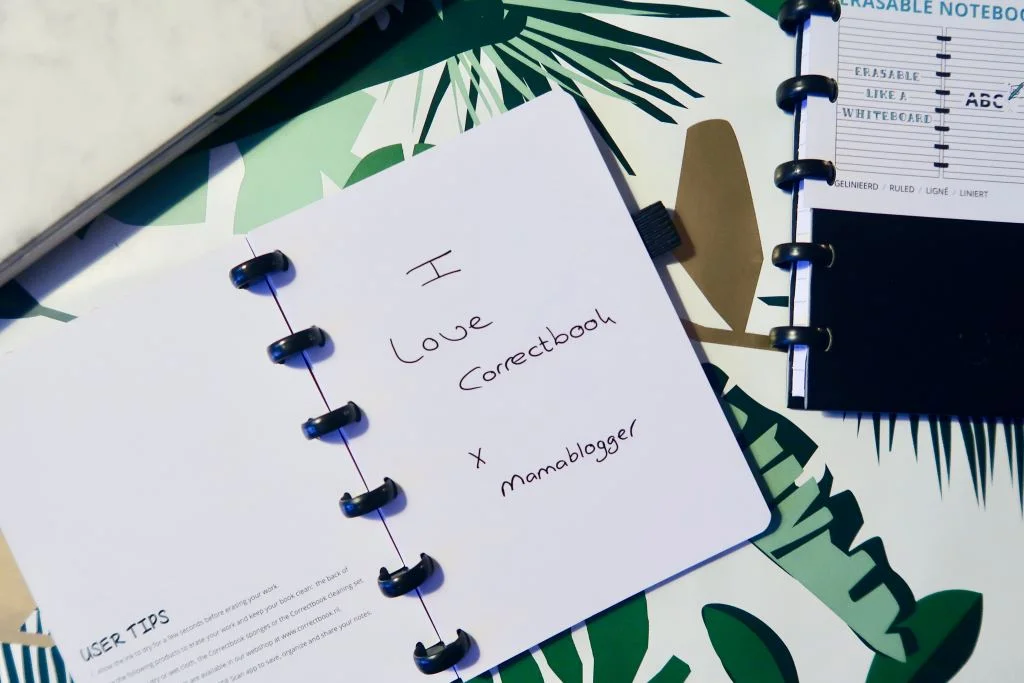 I
Love
Correctbook
x
mamablogger
USER TIPS
allow the ink to dry for a few seconds before erasing your work.
the following products to erase your work and keep your book clean: the back of
dry or wet cloth, the Correctbook sponges or the Correctbook cleaning set.
are available in our webshop at www.correctbook.nl.
Scan app to save, organize and share your notes.
ERASABLE NOTEBOO
ERASABLE
LIKE A
WHITEBOARD
ABC
GELINIEERD / RULED / LIGNÉ / LINIERT